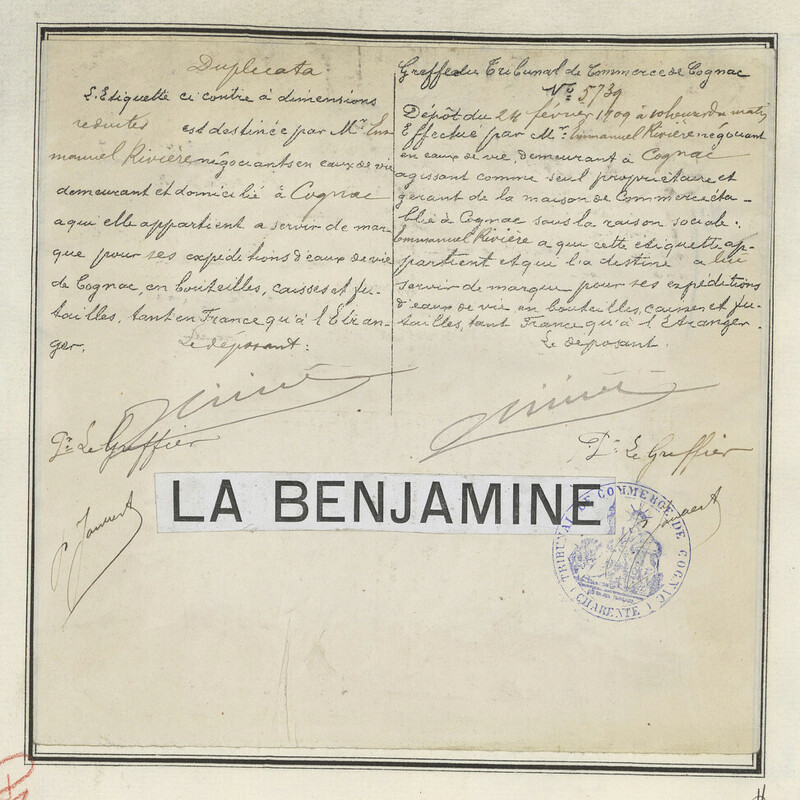 Duplicata
L'Etiquette ci contre à dimensions
reduites est destinée par Mr. Em-
manuel Rivière négociants en eaux de vie
demeurant et domicilié à Cognac
a qui elle appartient a servir de mar-
que pour ses expéditions d'eaux de vie
de Cognac, en bouteilles, caisses et fu-
tailles, tant en France qu'à l'Etran-
ger. Le déposant:
Rivière
Pr. Le Greffier
P. Jauvert
Greffe du Tribunal de Commerce de Cognac
No 5739
Dépôt du 24 février 1909 à 10 heures du matin
Effectue par Mr. Emmanuel Rivière négociant
en eaux de vie, demeurant à Cognac
agissant comme seul propriétaire et
gerant de la maison de Commerce éta-
blie à Cognac sous la raison sociale:
Emmanuel Rivière a qui cette etiquette ap-
partient et qui l'a destiné a lui
servir de marque pour ses expéditions
d'eaux de vie en bouteilles, caisses et fu-
tailles, tant France qu'à l'Etranger.
Le déposant.
Rivière
Pr. Le Greffier
LA BENJAMINE
TRIBUNAL DE COMMERCE DE COGNAC
(CHARENTE)